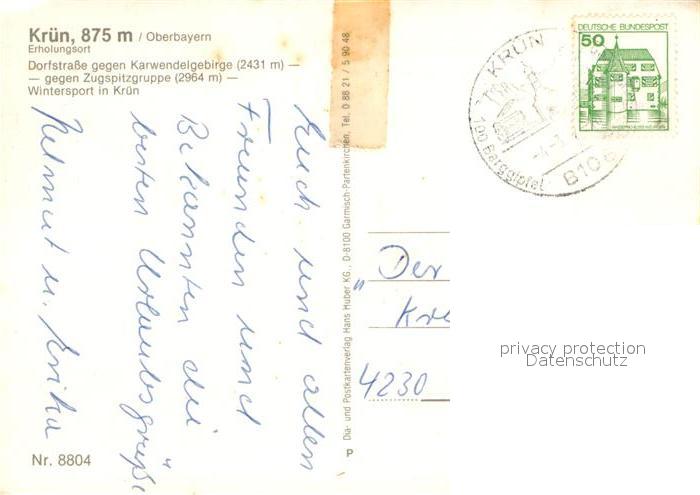 Krün, 875 m / Oberbayern
Erholungsort
Dorfstraße gegen Karwendelgebirge (2431 m) —
— gegen Zugspitzgruppe (2964 m) —
Wintersport in Krün
Euch und allen
Freunden und
Bekannten die
besten Urlaubsgrüße
Helmut u. Erika
Nr. 8804
Dia- und Postkartenverlag Hans Huber KG., D-8100 Garmisch-Partenkirchen, Tel. 0 88 21 / 5 90 48
P
KRÜN
100 Berggipfel
DEUTSCHE BUNDESPOST
50
„Der
4230
privacy protection
Datenschutz